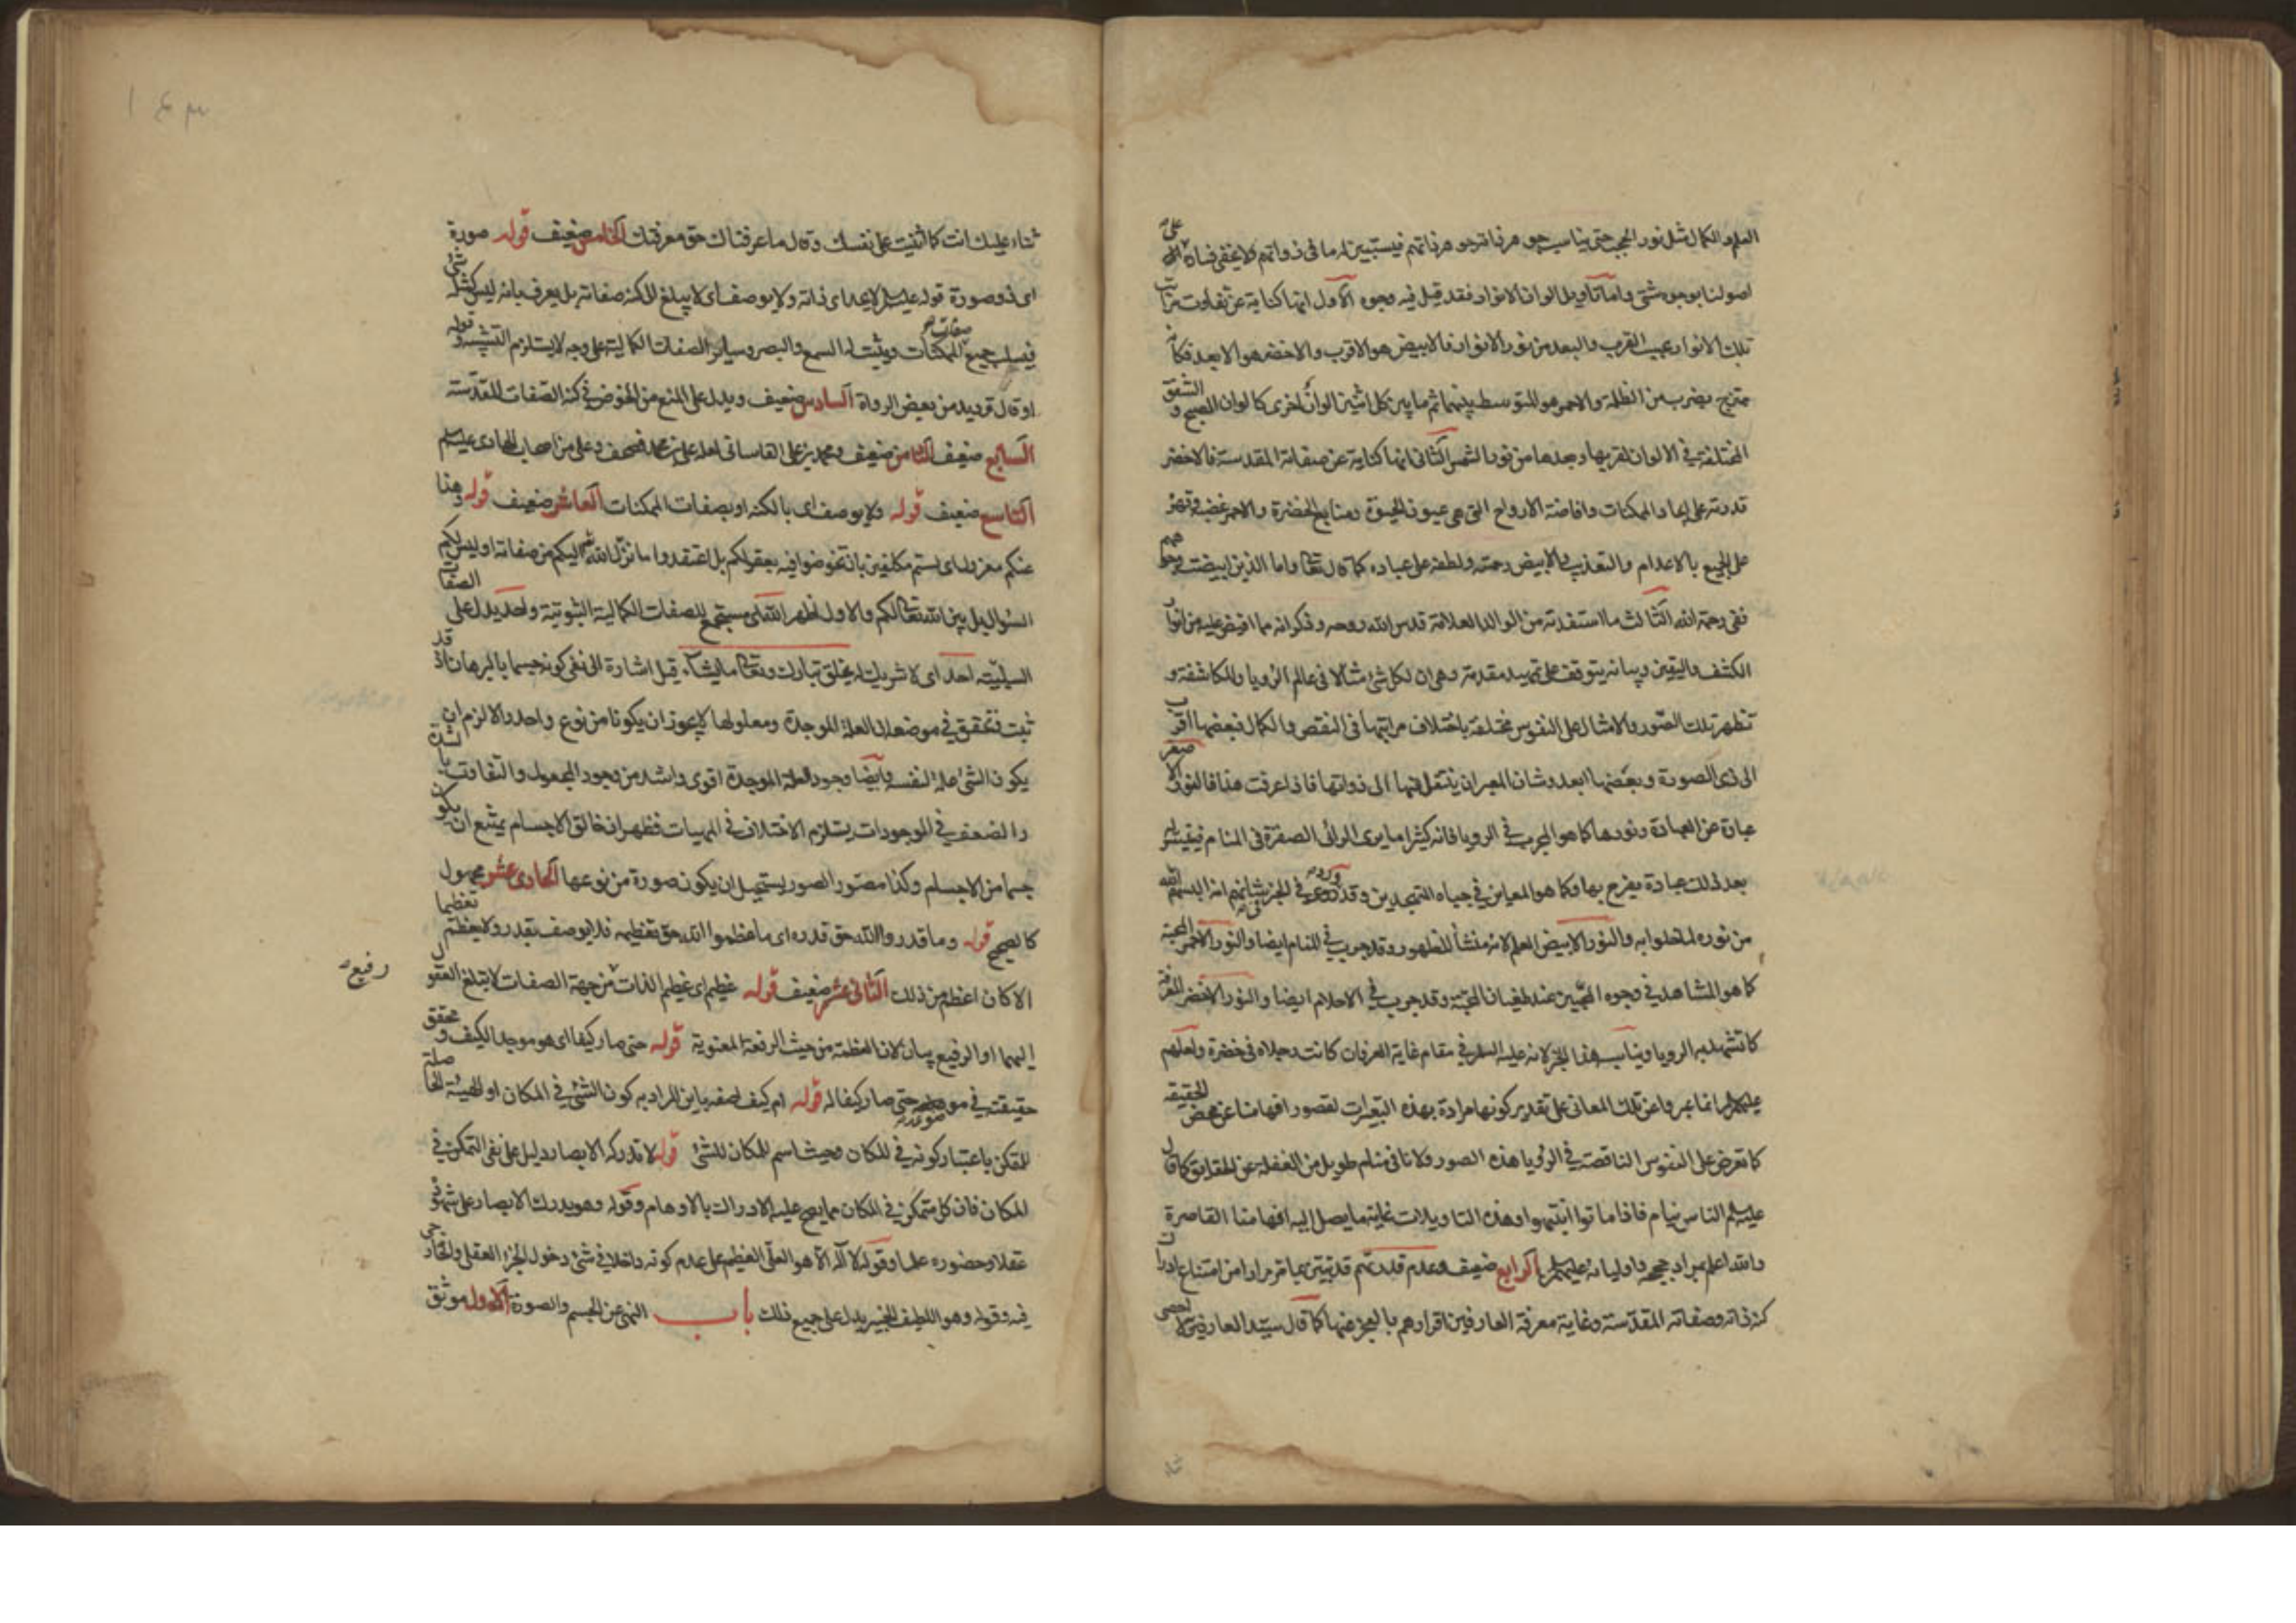 العلم والكمال مثل نور الحجب حتى يناسب جوهر ذاته جوهر ذاتهم فيستبين له ما في ذواتهم كما لا يخفى فساده على
اصولنا بوجوه شتى واما تاويل الوان الانوار فقد قيل فيه وجوه الاول انها كناية عن تفاوت مراتب
تلك الانوار بحسب القرب والبعد من نور الانوار فالابيض هو الاقرب والاخضر هو الابعد فكانه
ممتزج بضرب من الظلمة والاحمر هو المتوسط بينهما ثم ما بين كل اثنين الوان اخرى كالوان الصبح و الشفق
المختلفة في الالوان لقربها وبعدها من نور الشمس الثاني انها كناية عن صفاته المقدسة فالاخضر
قدرته على ايجاد الممكنات وافاضة الارواح التي هي عيون الحيوة ومنابع الخضرة والاحمر غضبه وقهره
على الجميع بالاعدام والتعذيب والابيض رحمته ولطفه على عباده كما قال تعالى واما الذين ابيضت وجوههم
ففي رحمة الله الثالث ما استفدته من الوالد العلامة قدس الله روحه وذكر انه مما افيض عليه من انوار
الكشف واليقين وبيانه يتوقف على تمهيد مقدمة وهي ان لكل شئ مثالا في عالم الرؤيا والمكاشفة و
تظهر تلك الصور والامثال على النفوس مختلفة باختلاف مراتبها في النقص والكمال فبعضها اقرب
الى ذي الصورة وبعضها ابعد وشان المعبر ان ينتقل منها الى ذواتها فاذا عرفت هذا فالنور الاصفر
عبارة عن العبادة ونورها كما هو المجرب في الرويا فانه كثيرا ما يرى الرائي الصفرة في المنام فيتيسر له
بعد ذلك عبادة يفرح بها وكما هو المعاين في جباه المتهجدين وقد ورد في الخبر في شانهم انه البسهم الله
من نوره لما خلوا به والنور الابيض العلم لانه منشأ للظهور وقد جرب في المنام ايضا والنور الاحمر المحبة
كما هو المشاهد في وجوه المحبين عند طغيان المحبة وقد جرب في الاحلام ايضا والنور الاخضر المعرفة
كما تشهد به الرويا ويناسب هذا الخبر لانه عليه السلام في مقام غاية العرفان كانت رجلاه في خضرة ولعلهم
عليهم السلام انما عبروا عن تلك المعاني على تقدير كونها مرادة بهذه التعبيرات لقصور افهامنا عن محض الحقيقة
كما تعرض على النفوس الناقصة في الرؤيا هذه الصور ولانا في منام طويل من الغفلة عن الحقايق كما قال
عليه السلام الناس نيام فاذا ماتوا انتبهوا وهذه التاويلات غاية ما يصل اليه افهامنا القاصرة
والله اعلم بمراد حججه واوليائه عليهم السلم الرابع ضعيف وعدم قدرتهم قد تبين بما مر مرارا من امتناع ادراك
كنه ذاته وصفاته المقدسة وغاية معرفة العارفين اقرارهم بالعجز عنها كما قال سيد العارفين لا احصى
ثناء عليك انت كما اثنيت على نفسك وقال ما عرفناك حق معرفتك الخامس ضعيف قوله صورة
اي ذو صورة قوله عليه السلام لا يحد اي ذاته ولا يوصف اي لا يبلغ الى كنه صفاته بل يعرف بانه ليس كمثله شئ
فيسلب جميع صفات الممكنات ويثبت له السمع والبصر وسائر الصفات الكمالية على وجه لا يستلزم التشبيه وقوله
او قال ترديد من بعض الرواة السادس ضعيف ويدل على المنع من الخوض في كنه الصفات المقدسة
السابع ضعيف الثامن ضعيف ومحمد بن علي القاساني لعله علي بن محمد فصحف وعلي من اصحاب الهادي عليه السلم
التاسع ضعيف قوله ولا يوصف اي بالكنه او بصفات الممكنات العاشر ضعيف قوله وهذا
عنكم معزول اي لستم مكلفين بان تخوضوا فيه بعقولكم بل اعتقدوا ما نزل الله اليكم من صفاته او ليس لكم
السؤال بل بين الله تعالى لكم والاول اظهر الله اي مستجمع للصفات الكمالية الثبوتية واحد يدل على الصفات
السلبية احد اي لا شريك له يخلق تبارك وتعالى ما يشاء قيل اشارة الى نفي كونه جسما بالبرهان اذ قد
ثبت فتحقق في موضعه ان العلة الموجدة ومعلولها لا يجوز ان يكونا من نوع واحد والا لزم ان
يكون الشئ علة لنفسه وايضا وجود العلة الموجدة اقوى واشد من وجود المجعول والتفاوت بالشدة
والضعف في الموجودات يستلزم الاختلاف في المهيات فظهر ان خالق الاجسام يمتنع ان يكون
جسما من الاجسام وكذا مصور الصور يستحيل ان يكون صورة من نوعها الحادي عشر مجهول
كالصحيح قوله وما قدروا الله حق قدره اي ما عظموا الله حق تعظيمه فلا يوصف بقدر ولا يعظم تعظيما
الا كان اعظم من ذلك الثاني عشر ضعيف قوله عظيم اي عظيم الذات رفيع من جهة الصفات لا تبلغ العقول
اليهما او الرفيع بيان لان العظمة من حيث الرفعة المعنوية قوله حتى صار كيفا اي هو موجد الكيف و محقق
حقيقته في موضوعه حتى صار كيفا له قوله ام كيف اصفه باين المراد به كون الشئ في المكان او الهيئة الحاصلة
للمتمكن باعتبار كونه في المكان وحيث اسم المكان للشئ قوله لا تدركه الابصار دليل على نفي التمكن في
المكان فان كل متمكن في المكان مما يصح عليه الادراك بالاوهام وقوله وهو يدرك الابصار على شهوده
عقلا وحضوره علما وقوله لا اله الا هو العلي العظيم على عدم كونه داخلا في شئ دخول الجزء العقلي والخارجي
فيه وقوله وهو اللطيف الخبير يدل على جميع ذلك باب النهى عن الجسم والصورة الاول موثق